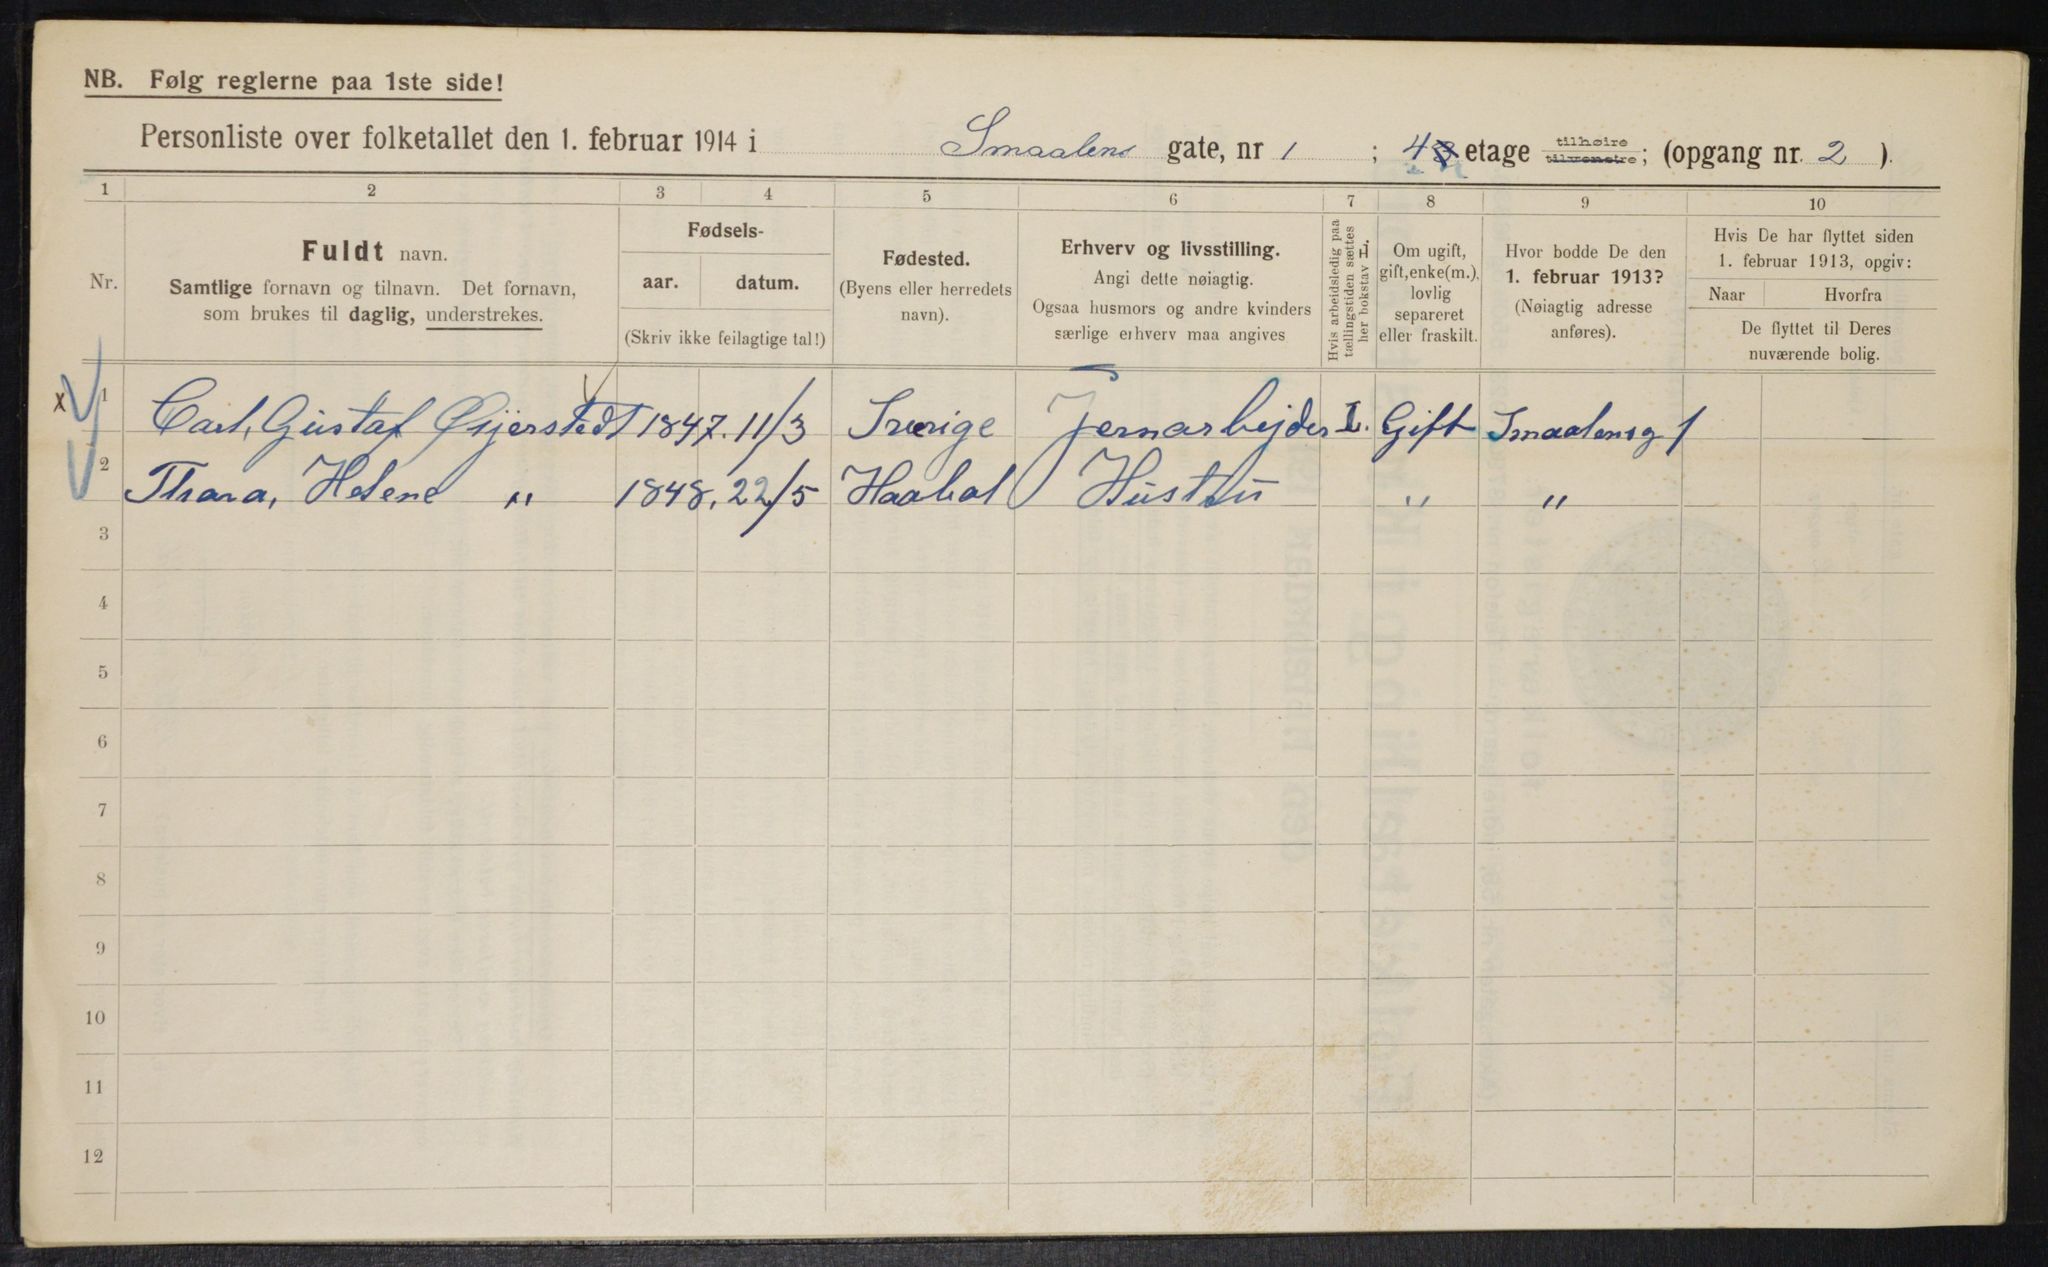 NB. Følg reglerne paa 1ste side!
Personliste over folketallet den 1. februar 1914 i Smaalens gate, nr 1 ; 4 etage tilhøire tilvenstre; (opgang nr. 2 ).
1 2 3 4 5 6 7 8 9 10
Nr.
Fuldt navn.
Samtlige fornavn og tilnavn. Det fornavn,
som brukes til daglig, understrekes.
Fødsels-
aar. datum.
(Skriv ikke feilagtige tal!)
Fødested.
(Byens eller herredets
navn).
Erhverv og livsstilling.
Angi dette nøiagtig.
Ogsaa husmors og andre kvinders
særlige erhverv maa angives
Hvis arbeidsledig paa
tællingstiden sættes
her bokstav L.
Om ugift,
gift, enke(m.),
lovlig
separeret
eller fraskilt.
Hvor bodde De den
1. februar 1913?
(Nøiagtig adresse
anføres).
Hvis De har flyttet siden
1. februar 1913, opgiv:
Naar Hvorfra
De flyttet til Deres
nuværende bolig.
x 1 Carl, Gustaf 1847. 11/3 Sverige Jernarbejder L. Gift Smaalensg 1
2 Thara, Helene " 1848. 22/5 Haabøl Hustru " "
3
4
5
6
7
8
9
10
11
12